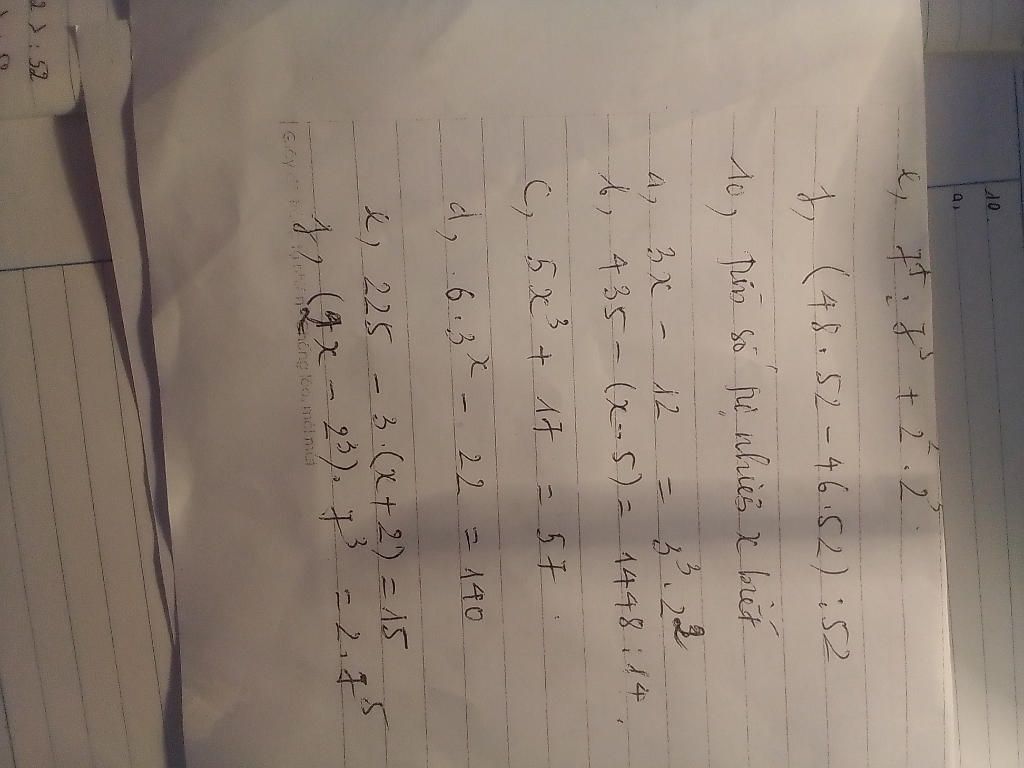 e, 7⁴ : 7³ + 2² . 2³.
f, (48 . 52 - 46 . 52) : 52
10, tìm số tự nhiên x biết
a, 3x - 12 = 3³ . 2²
b, 435 - (x - 5) = 1448 : 14.
c, 5x³ + 17 = 57.
d, 6 . 3ˣ - 22 = 140
e, 225 - 3 . (x + 2) = 15
f, (9x - 2³) . 7³ = 2 . 7⁵
10
a,
: 52